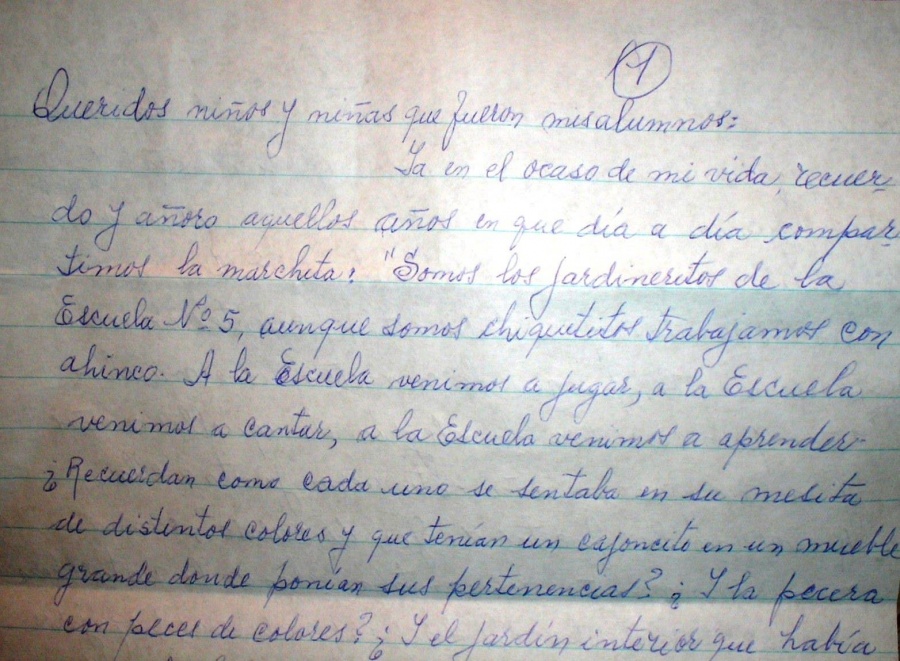 1
Queridos niños y niñas que fueron mis alumnos:
Ya en el ocaso de mi vida, recuer-
do y añoro aquellos años en que día a día compar-
timos la marchita: "Somos los jardineritos de la
Escuela Nº 5, aunque somos chiquititos trabajamos con
ahinco. A la Escuela venimos a jugar, a la Escuela
venimos a cantar, a la Escuela venimos a aprender
¿Recuerdan como cada uno se sentaba en su mesita
de distintos colores y que tenían un cajoncito en un mueble
grande donde ponían sus pertenencias? ¿Y la pecera
con peces de colores? ¿Y el jardín interior que había